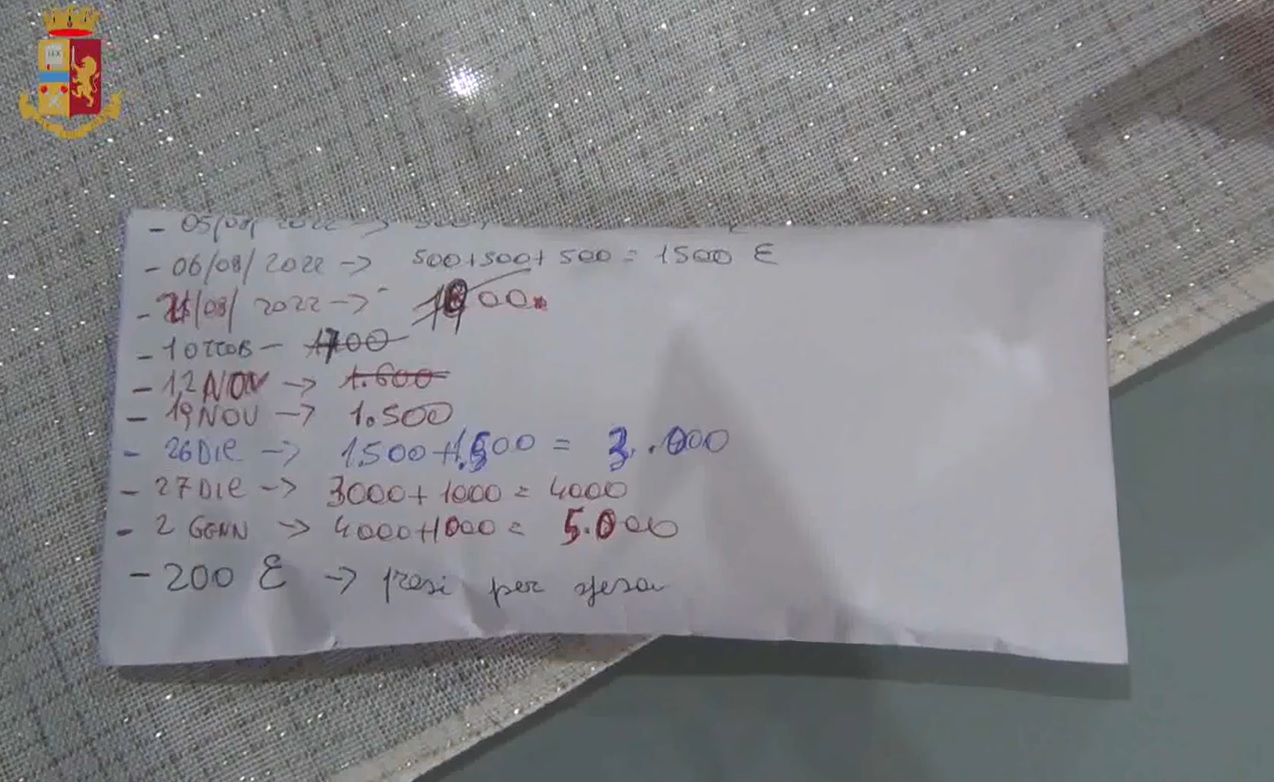 - 06/08/2022 -> 500+500+500 = 1500 €
/08/2022 ->
- 1 OTTOB -  1700
- 12 NOV -> 1.600
- 19 NOV -> 1.500
- 26 DIC -> 1.500+1.500 = 3.000
- 27 DIC -> 3000+1000 = 4000
- 2 GENN -> 4000+1000 = 5.000
- 200 € -> presi per spesa